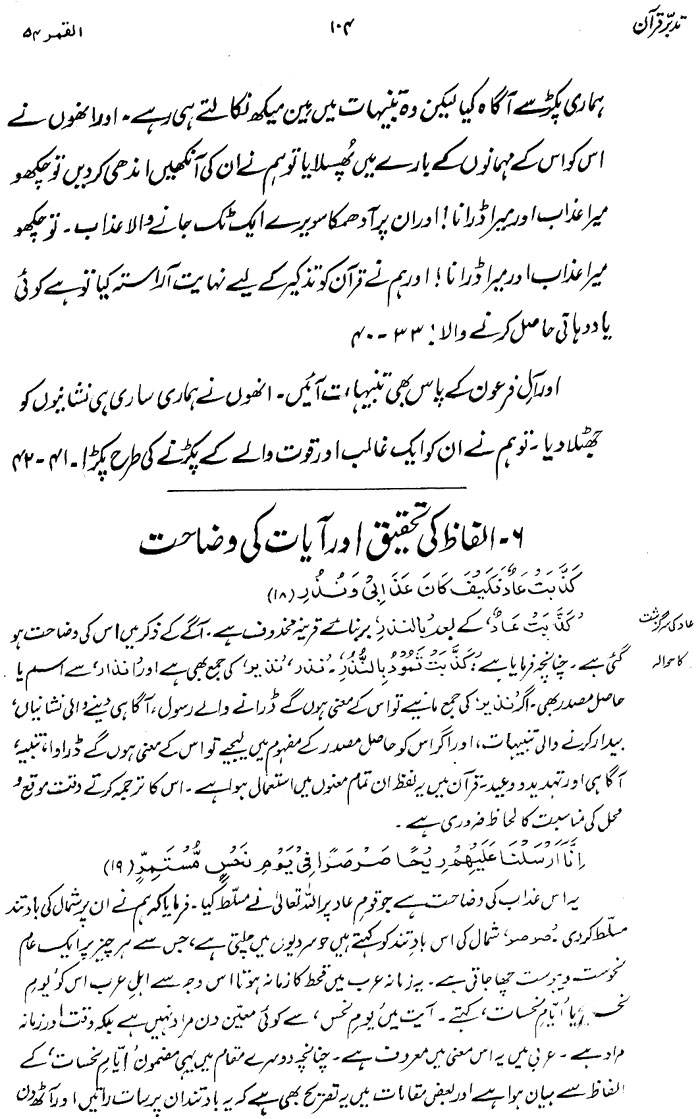 تدبّر قرآن ۱۰۴ القمر ۵۴
ہماری پکڑ سے آگاہ کیا لیکن وہ تنبیہات میں مین میکھ نکالتے ہی رہے۔ اور انھوں نے
اس کو اس کے مہمانوں کے بارے میں پُھسلایا تو ہم نے ان کی آنکھیں اندھی کر دیں تو چکھو
میرا عذاب اور میرا ڈرانا! اور ان پر آدھمکا سویرے ایک ٹک جانے والا عذاب۔ تو چکھو
میرا عذاب اور میرا ڈرانا! اور ہم نے قرآن کو تذکیر کے لیے نہایت آراستہ کیا تو ہے کوئی
یاددہانی حاصل کرنے والا! ۳۳ - ۴۰
اور آلِ فرعون کے پاس بھی تنبیہات آئیں۔ انھوں نے ہماری ساری ہی نشانیوں کو
جھٹلا دیا۔ تو ہم نے ان کو ایک غالب اور قوت والے کے پکڑنے کی طرح پکڑا۔ ۴۱ - ۴۲
۶۔ الفاظ کی تحقیق اور آیات کی وضاحت
كَذَّبَتْ عَادٌ فَكَيْفَ كَانَ عَذَابِىْ وَنُذُرِ (۱۸)
عاد کی سرگزشت
کا حوالہ
’كَذَّبَتْ عَادٌ‘ کے بعد ’بالنذر‘ بربنائے قرینہ محذوف ہے۔ آگے کے ذکر میں اس کی وضاحت ہو
گئی ہے۔ چنانچہ فرمایا ہے: ’كَذَّبَتْ ثَمُوْدُ بِالنُّذُرِ‘۔ ’نذر‘، ’نذیر‘ کی جمع بھی ہے اور ’انذار‘ سے اسم یا
حاصل مصدر بھی۔ اگر ’نذیر‘ کی جمع مانیے تو اس کے معنی ہوں گے ڈرانے والے رسول، آگاہی دینے والی نشانیاں،
بیدار کرنے والی تنبیہات، اور اگر اس کو حاصل مصدر کے مفہوم میں لیجیے تو اس کے معنی ہوں گے ڈراوا، تنبیہ،
آگاہی اور تہدید و وعید۔ قرآن میں یہ لفظ ان تمام معنوں میں استعمال ہوا ہے۔ اس کا ترجمہ کرتے وقت موقع و
محل کی مناسبت کا لحاظ ضروری ہے۔
اِنَّآ اَرْسَلْنَا عَلَيْهِمْ رِيْحًا صَرْصَرًا فِىْ يَوْمِ نَحْسٍ مُّسْتَمِرٍّ (۱۹)
یہ اس عذاب کی وضاحت ہے جو قومِ عاد پر اللہ تعالیٰ نے مسلّط کیا۔ فرمایا کہ ہم نے ان پر شمال کی بادِ تند
مسلّط کر دی۔ ’صرصر‘ شمال کی اس بادِ تند کو کہتے ہیں جو سردیوں میں چلتی ہے، جس سے ہر چیز پر ایک عام
نحوست و یبوست چھا جاتی ہے۔ یہ زمانہ عرب میں قحط کا زمانہ ہوتا اس وجہ سے اہلِ عرب اس کو ’یومِ
نحس‘ یا ’ایّامِ نحسات‘، کہتے۔ آیت میں ’یومِ نحس‘، سے کوئی معیّن دن مراد نہیں ہے بلکہ وقت اور زمانہ
مراد ہے۔ عربی میں یہ اس معنی میں معروف ہے۔ چنانچہ دوسرے مقام میں یہی مضمون ’ایّامِ نحسات‘ کے
الفاظ سے بیان ہوا ہے اور بعض مقامات میں یہ تصریح بھی ہے کہ یہ بادِ تند ان پر سات راتیں اور آٹھ دن